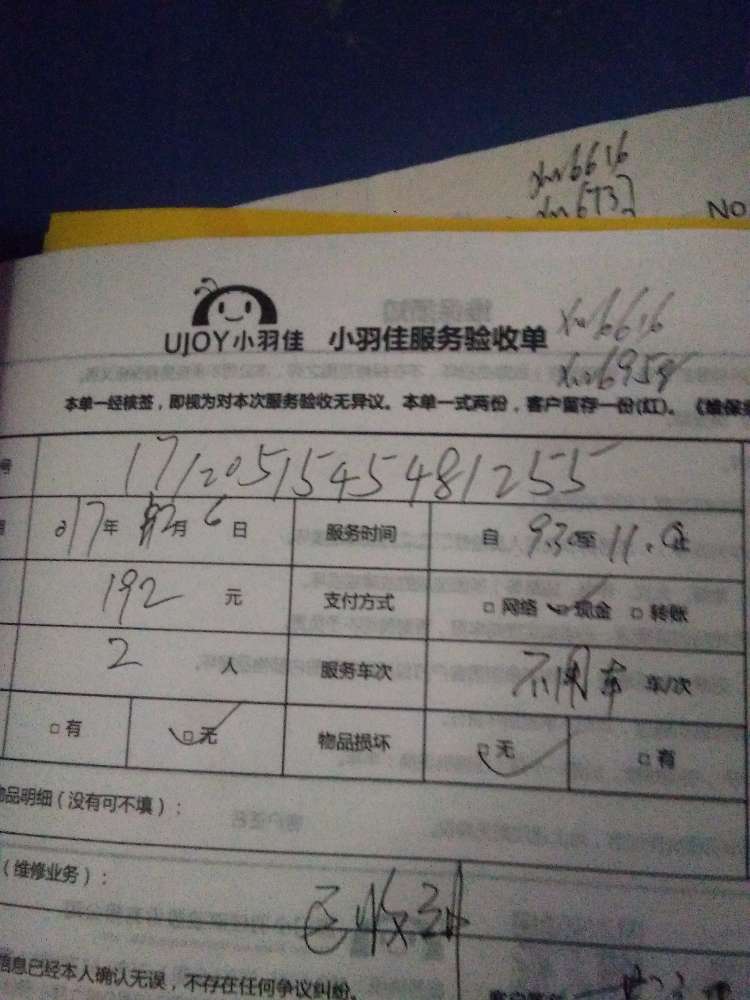 xw6616
xw6737
NO
UJOY小羽佳 小羽佳服务验收单
xw6616
xw6954
本单一经核签，即视为对本次服务验收无异议。本单一式两份，客户留存一份(红)。《维保
号 171205154548125​5
217年 12月 6日 服务时间 自 9.30至 11.0 止
192 元 支付方式 □网络 □现金 □转账
2 人 服务车次 不用车 车/次
□有 □无 物品损坏 □无 □有
物品明细（没有可不填）：
（维修业务）：
信息已经本人确认无误，不存在任何争议纠纷。